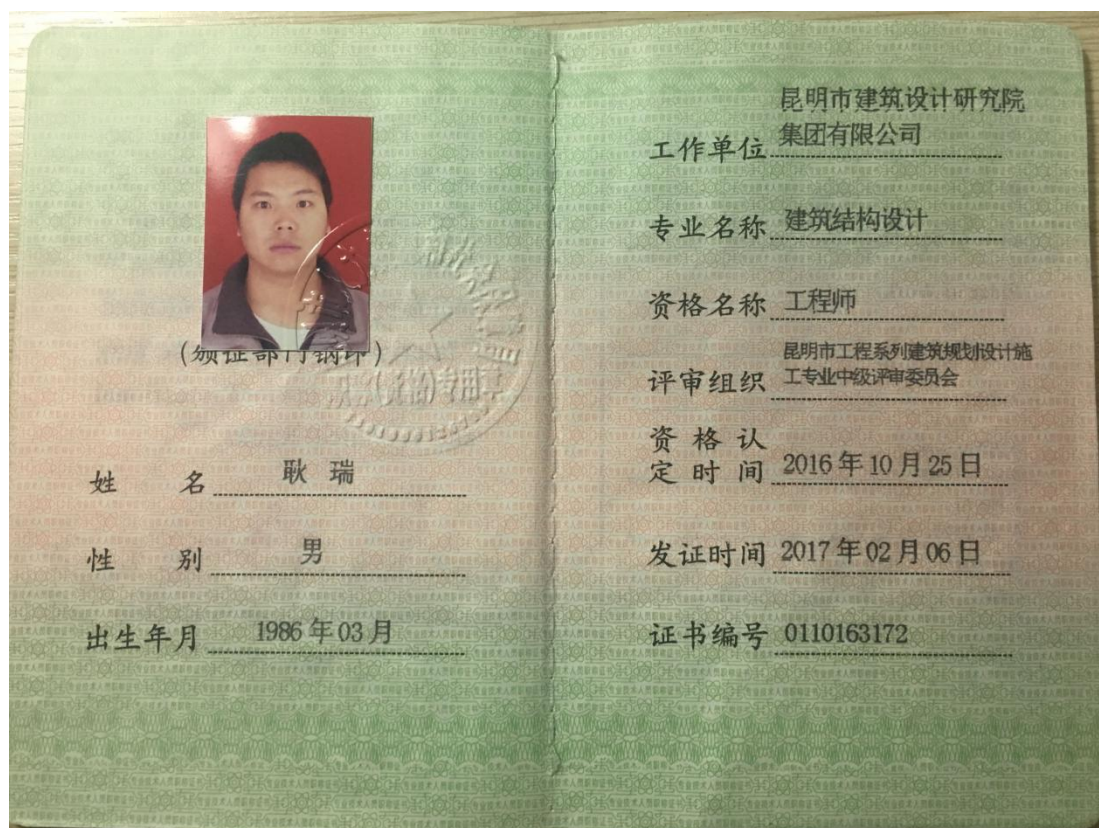 (颁证部门钢印)
姓 名 耿 瑞
性 别 男
出生年月 1986年03月
昆明市建筑设计研究院
工作单位 集团有限公司
专业名称 建筑结构设计
资格名称 工程师
昆明市工程系列建筑规划设计施
评审组织 工专业中级评审委员会
资格认
定时间 2016年10月25日
发证时间 2017年02月06日
证书编号 0110163172